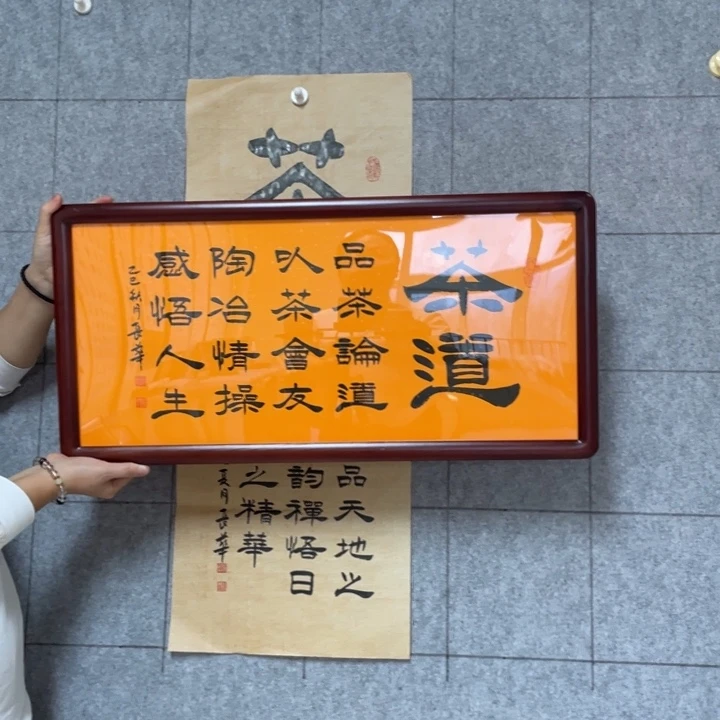 茶道
品茶論道
以茶會友
陶冶情操
感悟人生
乙巳秋月長華
茶
品天地之
韵禪悟日
之精華
夏月長華